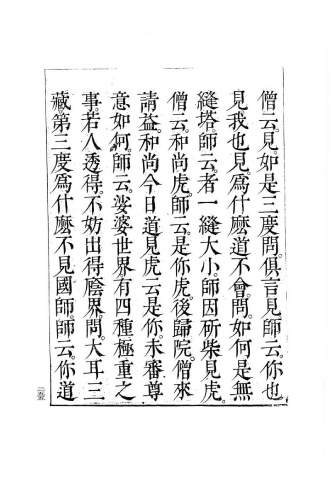 僧云。見。如是三度問。俱言見。師云。你也
見我也見。爲什麼道不會。問。如何是無
縫塔。師云。者一縫大小。師因斫柴見虎。
僧云。和尚虎。師云。是你虎。後歸院。僧來
請益。和尚今日道見虎。云是你。未審尊
意如何。師云。娑婆世界有四種極重之
事。若人透得。不妨出得陰界。問。大耳三
藏第三度爲什麼不見國師。師云。你道